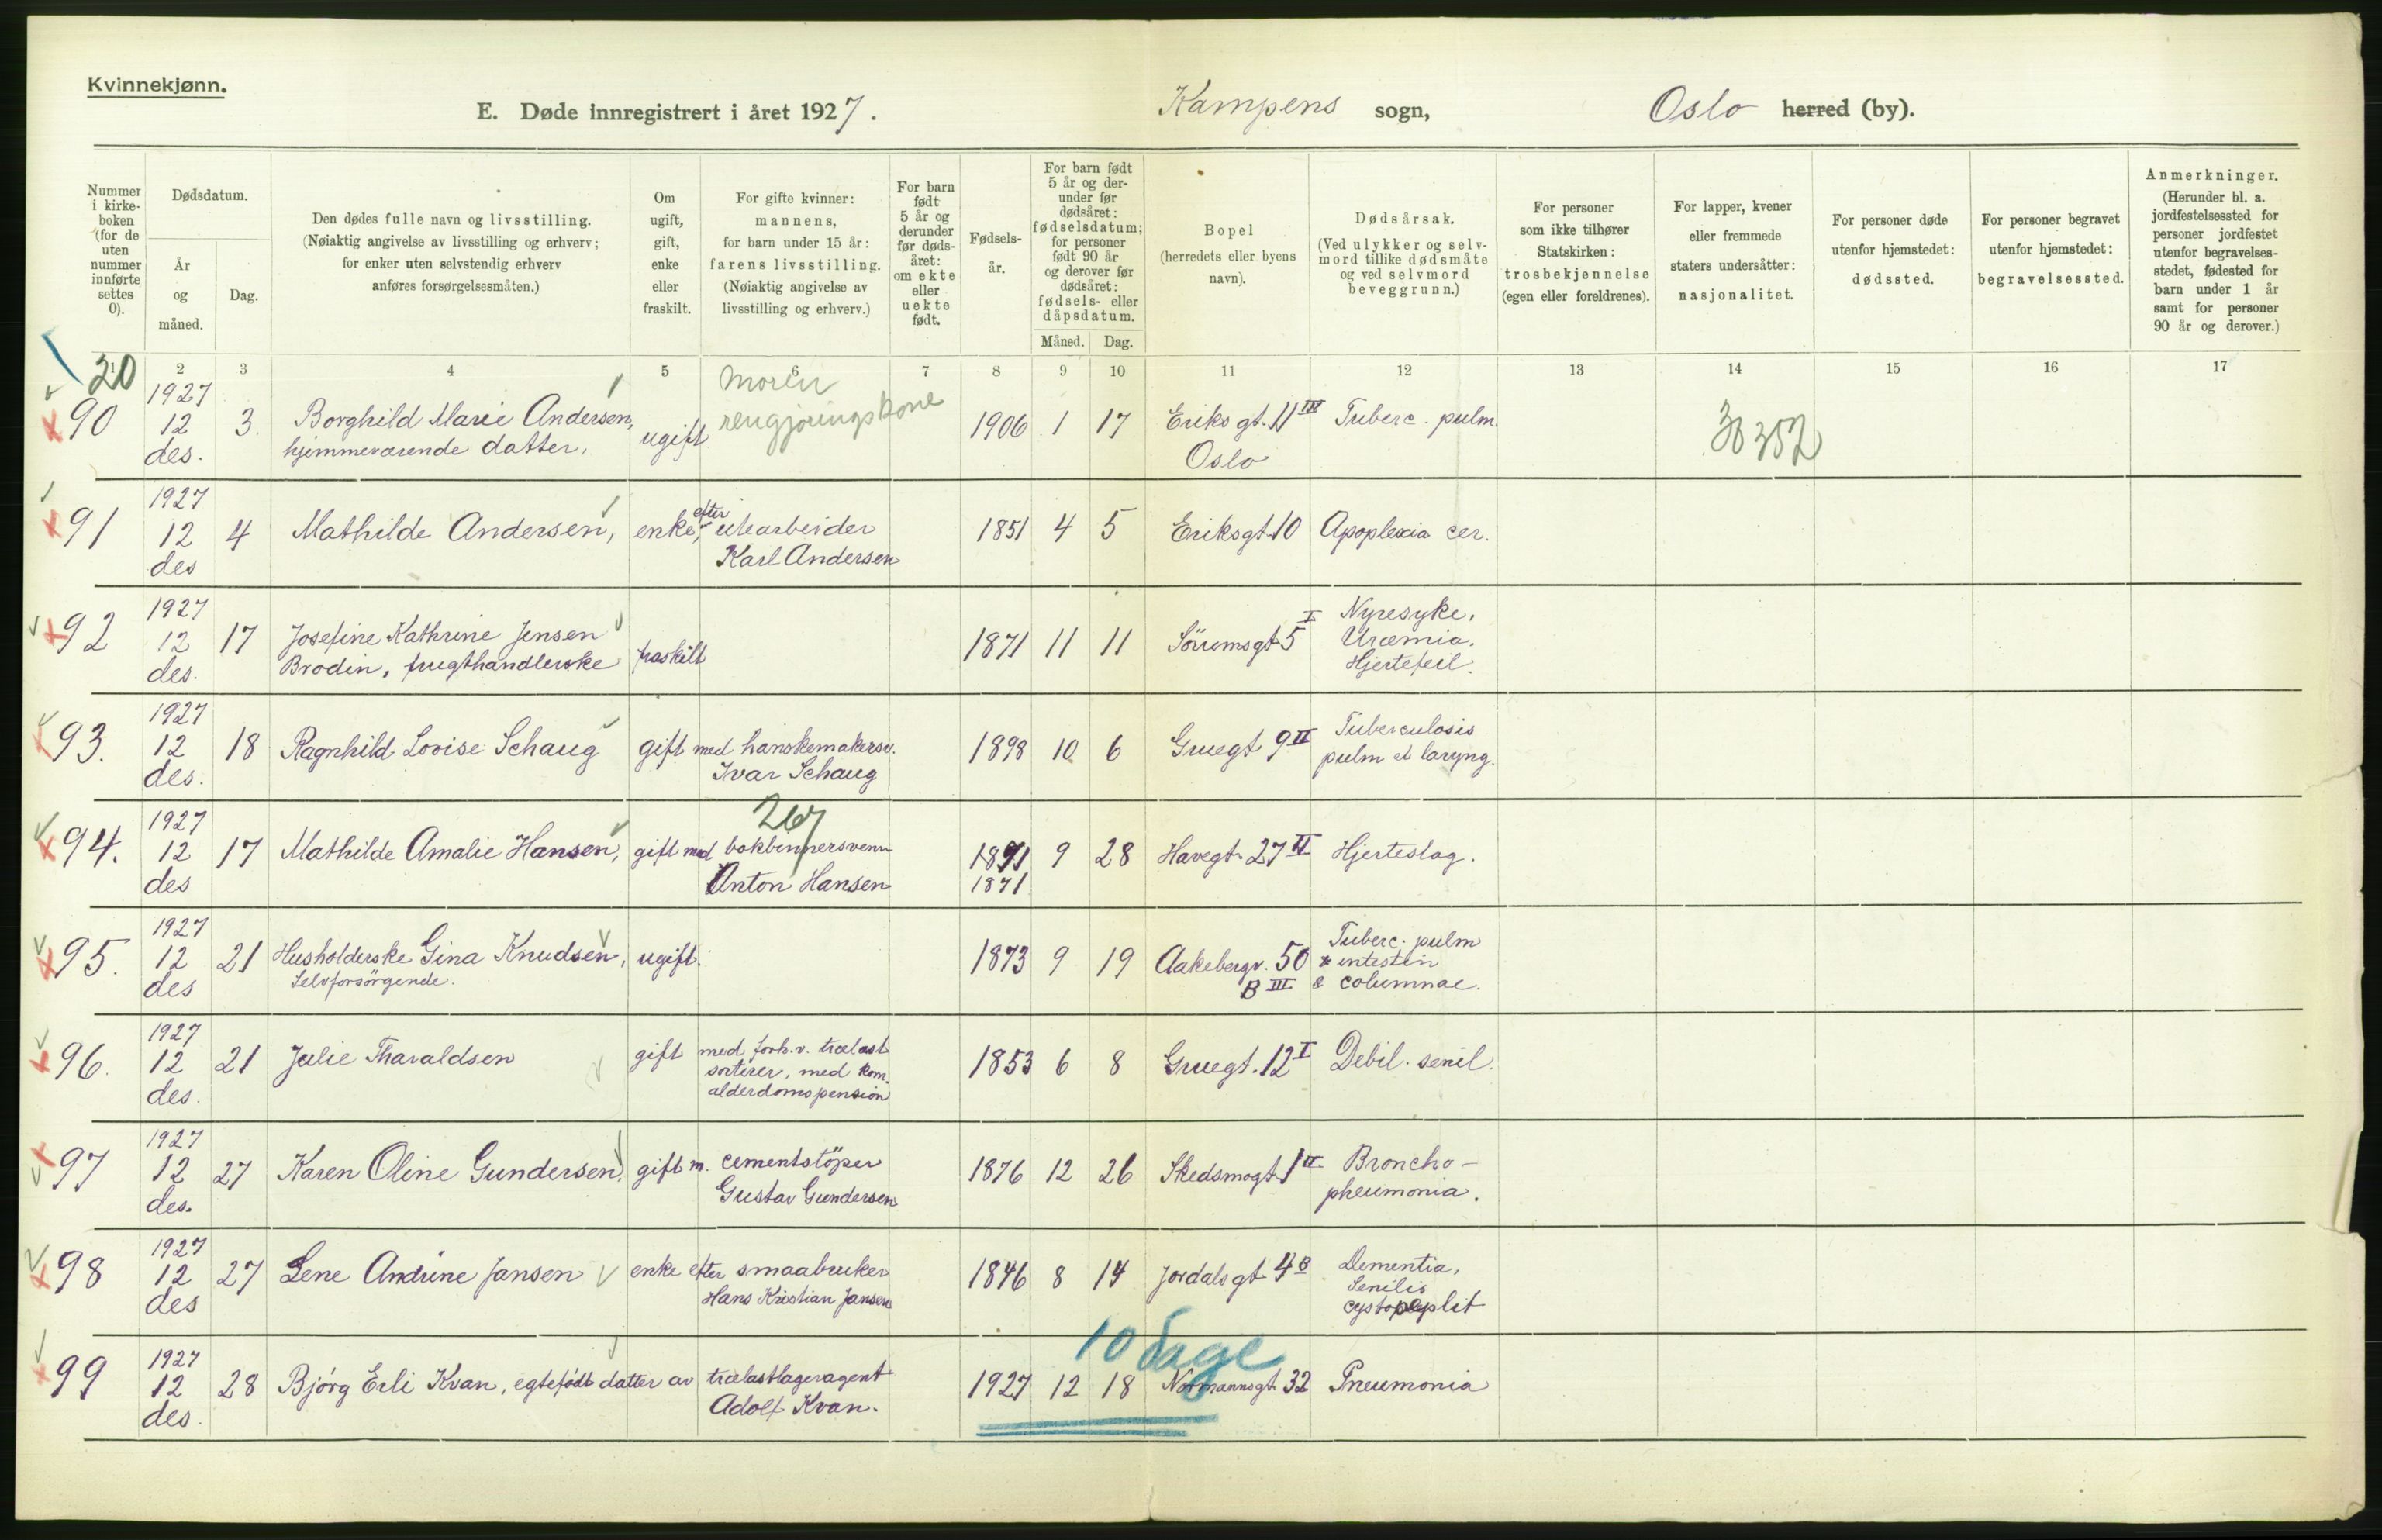 Kvinnekjønn.
E. Døde innregistrert i året 1927. Kampens sogn, Oslo herred (by).
Nummer i kirkeboken (for de uten nummer innførte settes 0).
Dødsdatum.
År og måned.
Dag.
Den dødes fulle navn og livsstilling.
(Nøiaktig angivelse av livsstilling og erhverv;
for enker uten selvstendig erhverv
anføres forsørgelsesmåten.)
Om ugift, gift, enke eller fraskilt.
For gifte kvinner:
mannens,
for barn under 15 år:
farens livsstilling.
(Nøiaktig angivelse av
livsstilling og erhverv.)
For barn født 5 år og derunder før dødsåret: om ekte eller uekte født.
Fødselsår.
For barn født 5 år og derunder før dødsåret: fødselsdatum; for personer født 90 år og derover før dødsåret: fødsels- eller dåpsdatum.
Måned. Dag.
Bopel
(herredets eller byens
navn).
Dødsårsak.
(Ved ulykker og selvmord tillike dødsmåte
og ved selvmord
beveggrunn.)
For personer
som ikke tilhører
Statskirken:
trosbekjennelse
(egen eller foreldrenes).
For lapper, kvener
eller fremmede
staters undersåtter:
nasjonalitet.
For personer døde
utenfor hjemstedet:
dødssted.
For personer begravet
utenfor hjemstedet:
begravelsessted.
Anmerkninger.
(Herunder bl. a.
jordfestelsessted for
personer jordfestet
utenfor begravelsesstedet, fødested for
barn under 1 år
samt for personer
90 år og derover.)
1 2 3 4 5 6 7 8 9 10 11 12 13 14 15 16 17
20
90 1927 12 des. 3. Borghild Marie Andersen, hjemmeværende datter, ugift moren rengjøringskone 1906 1 17 Eriksgt. 11 III Oslo Tuberc. pulm.
91 1927 12 des 4 Mathilde Andersen, enke, efter utearbeider Karl Andersen 1851 4 5 Eriksgt. 10 Apoplexia cer.
92 1927 12 des. 17 Josefine Kathrine Jensen Brodin, frugthandlerske fraskilt 1871 11 11 Sörumsgt 5 I Nyresyke, Uræmia. Hjertefeil.
93. 1927 12 des. 18 Ragnhild Lovise Schaug gift med hanskemakersv. Ivar Schaug 1898 10 6 Gruegt 9 II Tuberculosis pulm et laryng.
94. 1927 12 des 17 Mathilde Amalie Hansen, gift med bokbinnersvenn Anton Hansen 267 1891 1871 9 28 Havegt. 27 II Hjerteslag.
95. 1927 12 des 21 Husholderske Gina Knudsen, Selvforsörgende. ugift. 1873 9 19 Aakebergv. 50 B III Tuberc. pulm & intestin & columnae.
96. 1927 12 des. 21 Julie Tharaldsen gift med forh.v. trælast sorterer, med kom. alderdomspension 1853 6 8 Gruegt. 12 I Debil. senil.
97 1927 12 des. 27 Karen Oline Gundersen, gift m. cementstöper Gustav Gundersen 1876 12 26 Skedsmogt 1 II Broncho-pneumonia.
98 1927 12 des 27 Lene Andrine Jansen enke efter smaabruker Hans Kristian Jansen 1846 8 14 Jordalsgt 4 B Dementia, Senilis
99 1927 12 des. 28 Bjørg Erli Kvan, egtefødt datter av trælastlageragent Adolf Kvan. 1927 12 18 10 dage Normannsgt 32 Pneumonia